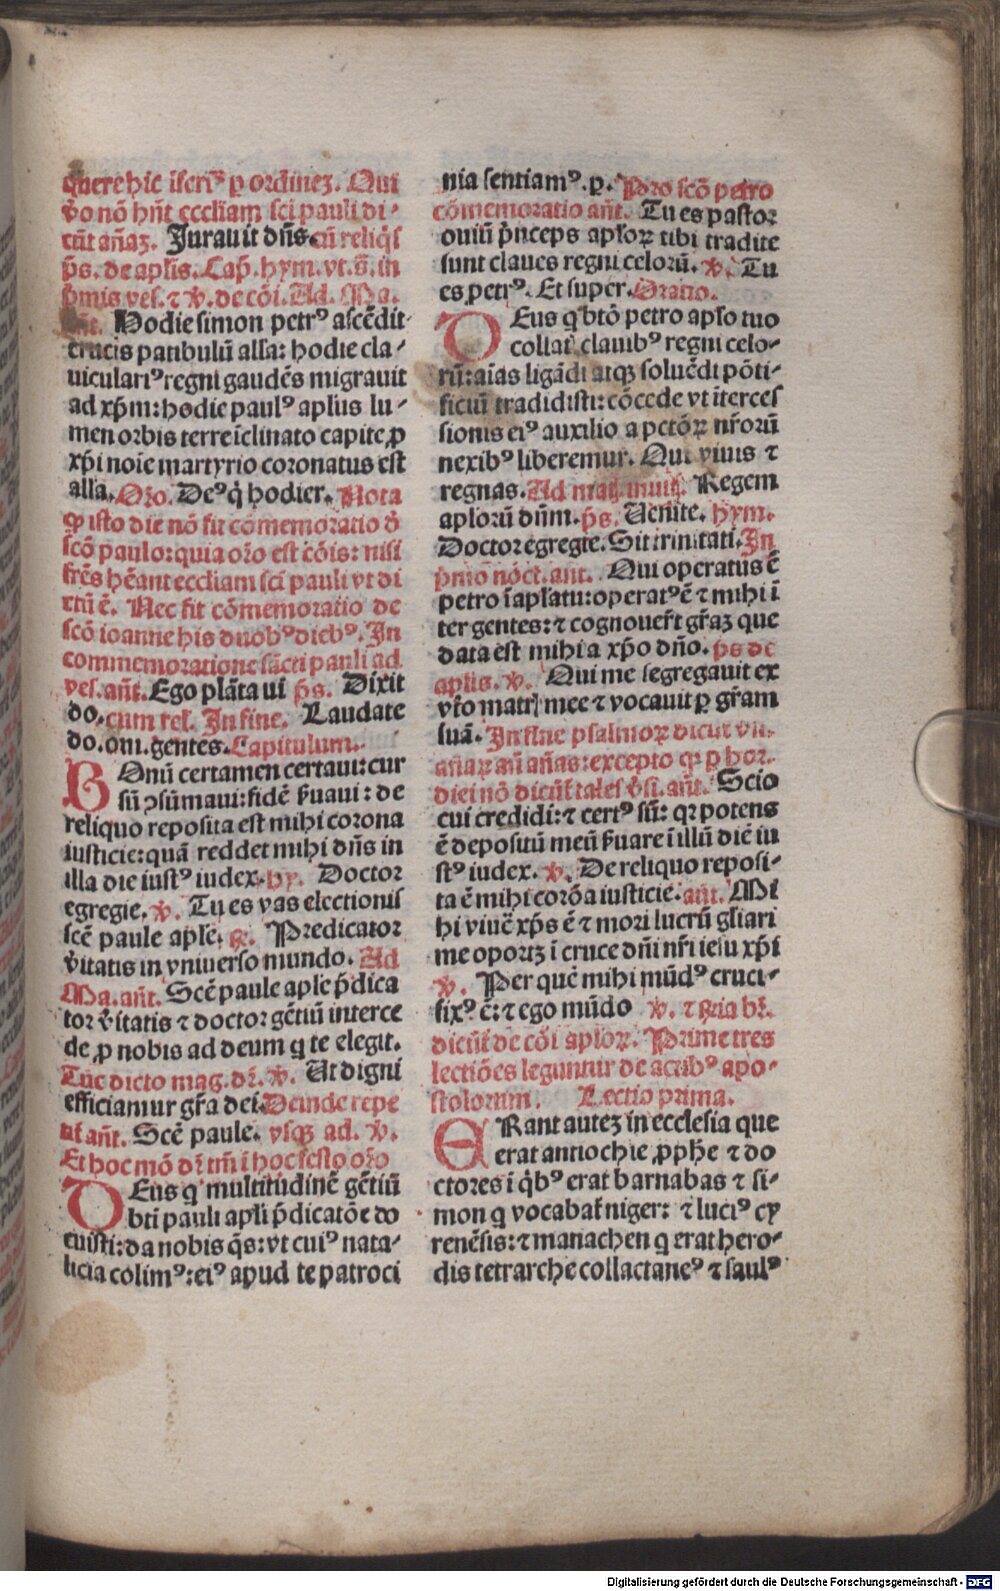 querehic iſeriꝰ ꝑ ordinez. Qui
ꝟo nõ hñt eccliam ſci pauli di⸗
cũt añaʒ. Jurauit dñs. cũ reliq̃ſ
p̃s. de aplis. Cap̃. hym. vt. s̃. in
p̃mis veſ. ⁊ ꝟ. de cõi. Ad. Ma.
añt. Hodie ſimon petrꝰ aſcẽdit
crucis patibulũ alla: hodie cla⸗
uiculariꝰ regni gaudẽs migrauit
ad xp̃m: hodie paulꝰ aplus lu⸗
men orbis terre ĩclinato capite ꝓ
xp̃i noĩe martyrio coronatus eſt
alla. Orõ. Deꝰ q̃ hodier. Nota
ꝙ iſto die nõ fit cõmemoratio ð
ſcõ paulo: quia orõ eſt cõis: niſi
frẽs hẽant eccliam ſci pauli vt di
ctũ ẽ. Nec fit cõmemoratio de
ſcõ ioanne his duobꝰ diebꝰ. In
commemoratione ſãcti pauli ad
veſ. añt. Ego plãta ui p̃s. Dixit
do. cum rel. In fine. Laudate
do. om. gentes. Capitulum.
BOnũ certamen certaui: cur
ſũ ꝯſũmaui: fidẽ ſ̃uaui: de
reliquo repoſita eſt mihi corona
iuſticie: quã reddet mihi dñs in
illa die iuſtꝰ iudex. hy. Doctor
egregie. ꝟ. Tu es vas electionis
ſcẽ paule aple. ꝶ. Predicator
ꝟitatis in vniuerſo mundo. Ad
Ma. añt. Scẽ paule aple p̃dica
tor ꝟitatis ⁊ doctor gẽtiũ interce
de ꝓ nobis ad deum q̇ te elegit.
Tũc dicto mag. dr̃. ꝟ. Ut digni
efficiamur gr̃a dei. Deinde repe
at̃ añt. Scẽ paule. vſqʒ ad. ꝟ.
Et hoc mõ dr̃ tm̃ i hoc feſto. orõ
DEus q̇ multitudinẽ gẽtiũ
bti pauli apli p̃dicatõe do
cuiſti: da nobis q̃s: vt cuiꝰ nata⸗
licia colimꝰ: eiꝰ apud te patroci
nia ſentiamꝰ. ꝑ. Pro ſcõ petro
cõmemoratio añt. Tu es paſtor
ouiũ p̃nceps aploꝝ tibi tradite
ſunt claues regni celorũ. ꝟ. Tu
es petrꝰ. Et ſuper. Oratio.
DEus q̇ btõ petro aplo tuo
collat̃ clauibꝰ regni celo⸗
rũ: aĩas ligãdi atqʒ ſoluẽdi põti⸗
ficiũ tradidiſti: cõcede vt ĩterceſ
ſionis eiꝰ auxilio a pctõꝝ nr̃orũ
nexibꝰ liberemur. Qui viuis ⁊
regnas. Ad mat̃. inuit̃. Regem
aplorũ dñm. p̃s. Uenite. hym.
Doctor egregie. Sit trinitati. In
p̃mo nõct. ant. Qui operatus ẽ
petro ĩ aplatu: operatꝰ ẽ ⁊ mihi ĩ
ter gentes: ⁊ cognouer̃t gr̃aʒ que
data eſt mihi a xp̃o dño. p̃s de
aplis. ꝟ. Qui me ſegregauit ex
vt̃o matr̃ mee ⁊ vocauit ꝑ gr̃am
ſuã. In fine pſalmoꝝ dicũt̃ vñ.
añaꝝ añ añas: excepto ꝙ ꝑ hor.
diei nõ dicũt̃ tales ꝟſi. añt. Scio
cui credidi: ⁊ certꝰ ſũ: qꝛ potens
ẽ depoſitũ meũ ſ̃uare ĩ illũ diẽ iu
ſtꝰ iudex. ꝟ. De reliquo repoſi⸗
ta ẽ mihi corõa iuſticie. añt. Mi
hi viuẽ xp̃s ẽ ⁊ mori lucrũ gliari
me oportʒ ĩ cruce dñi nr̃i ieſu xp̃i
ꝟ. Per quẽ mihi mũdꝰ cruci⸗
fixꝰ ẽ: ⁊ ego mũdo ꝟ. ⁊ ꝶia br̃.
dicũt̃ de cõi aploꝝ. Prime tres
lectiões legũntur de actibꝰ apo⸗
ſtolorum. Lectio prima.
ERant autez in eccleſia que
erat antiochie ꝓphẽ ⁊ do
ctores ĩ q̃bꝰ erat barnabas ⁊ ſi⸗
mon q̇ vocabat̃ niger: ⁊ luciꝰ cy
renẽſis: ⁊ manachen q̇ erat hero⸗
dis tetrarche collactaneꝰ ⁊ ſaulꝰ
Digitalisierung gefördert durch die Deutsche Forschungsgemeinschaft - DFG